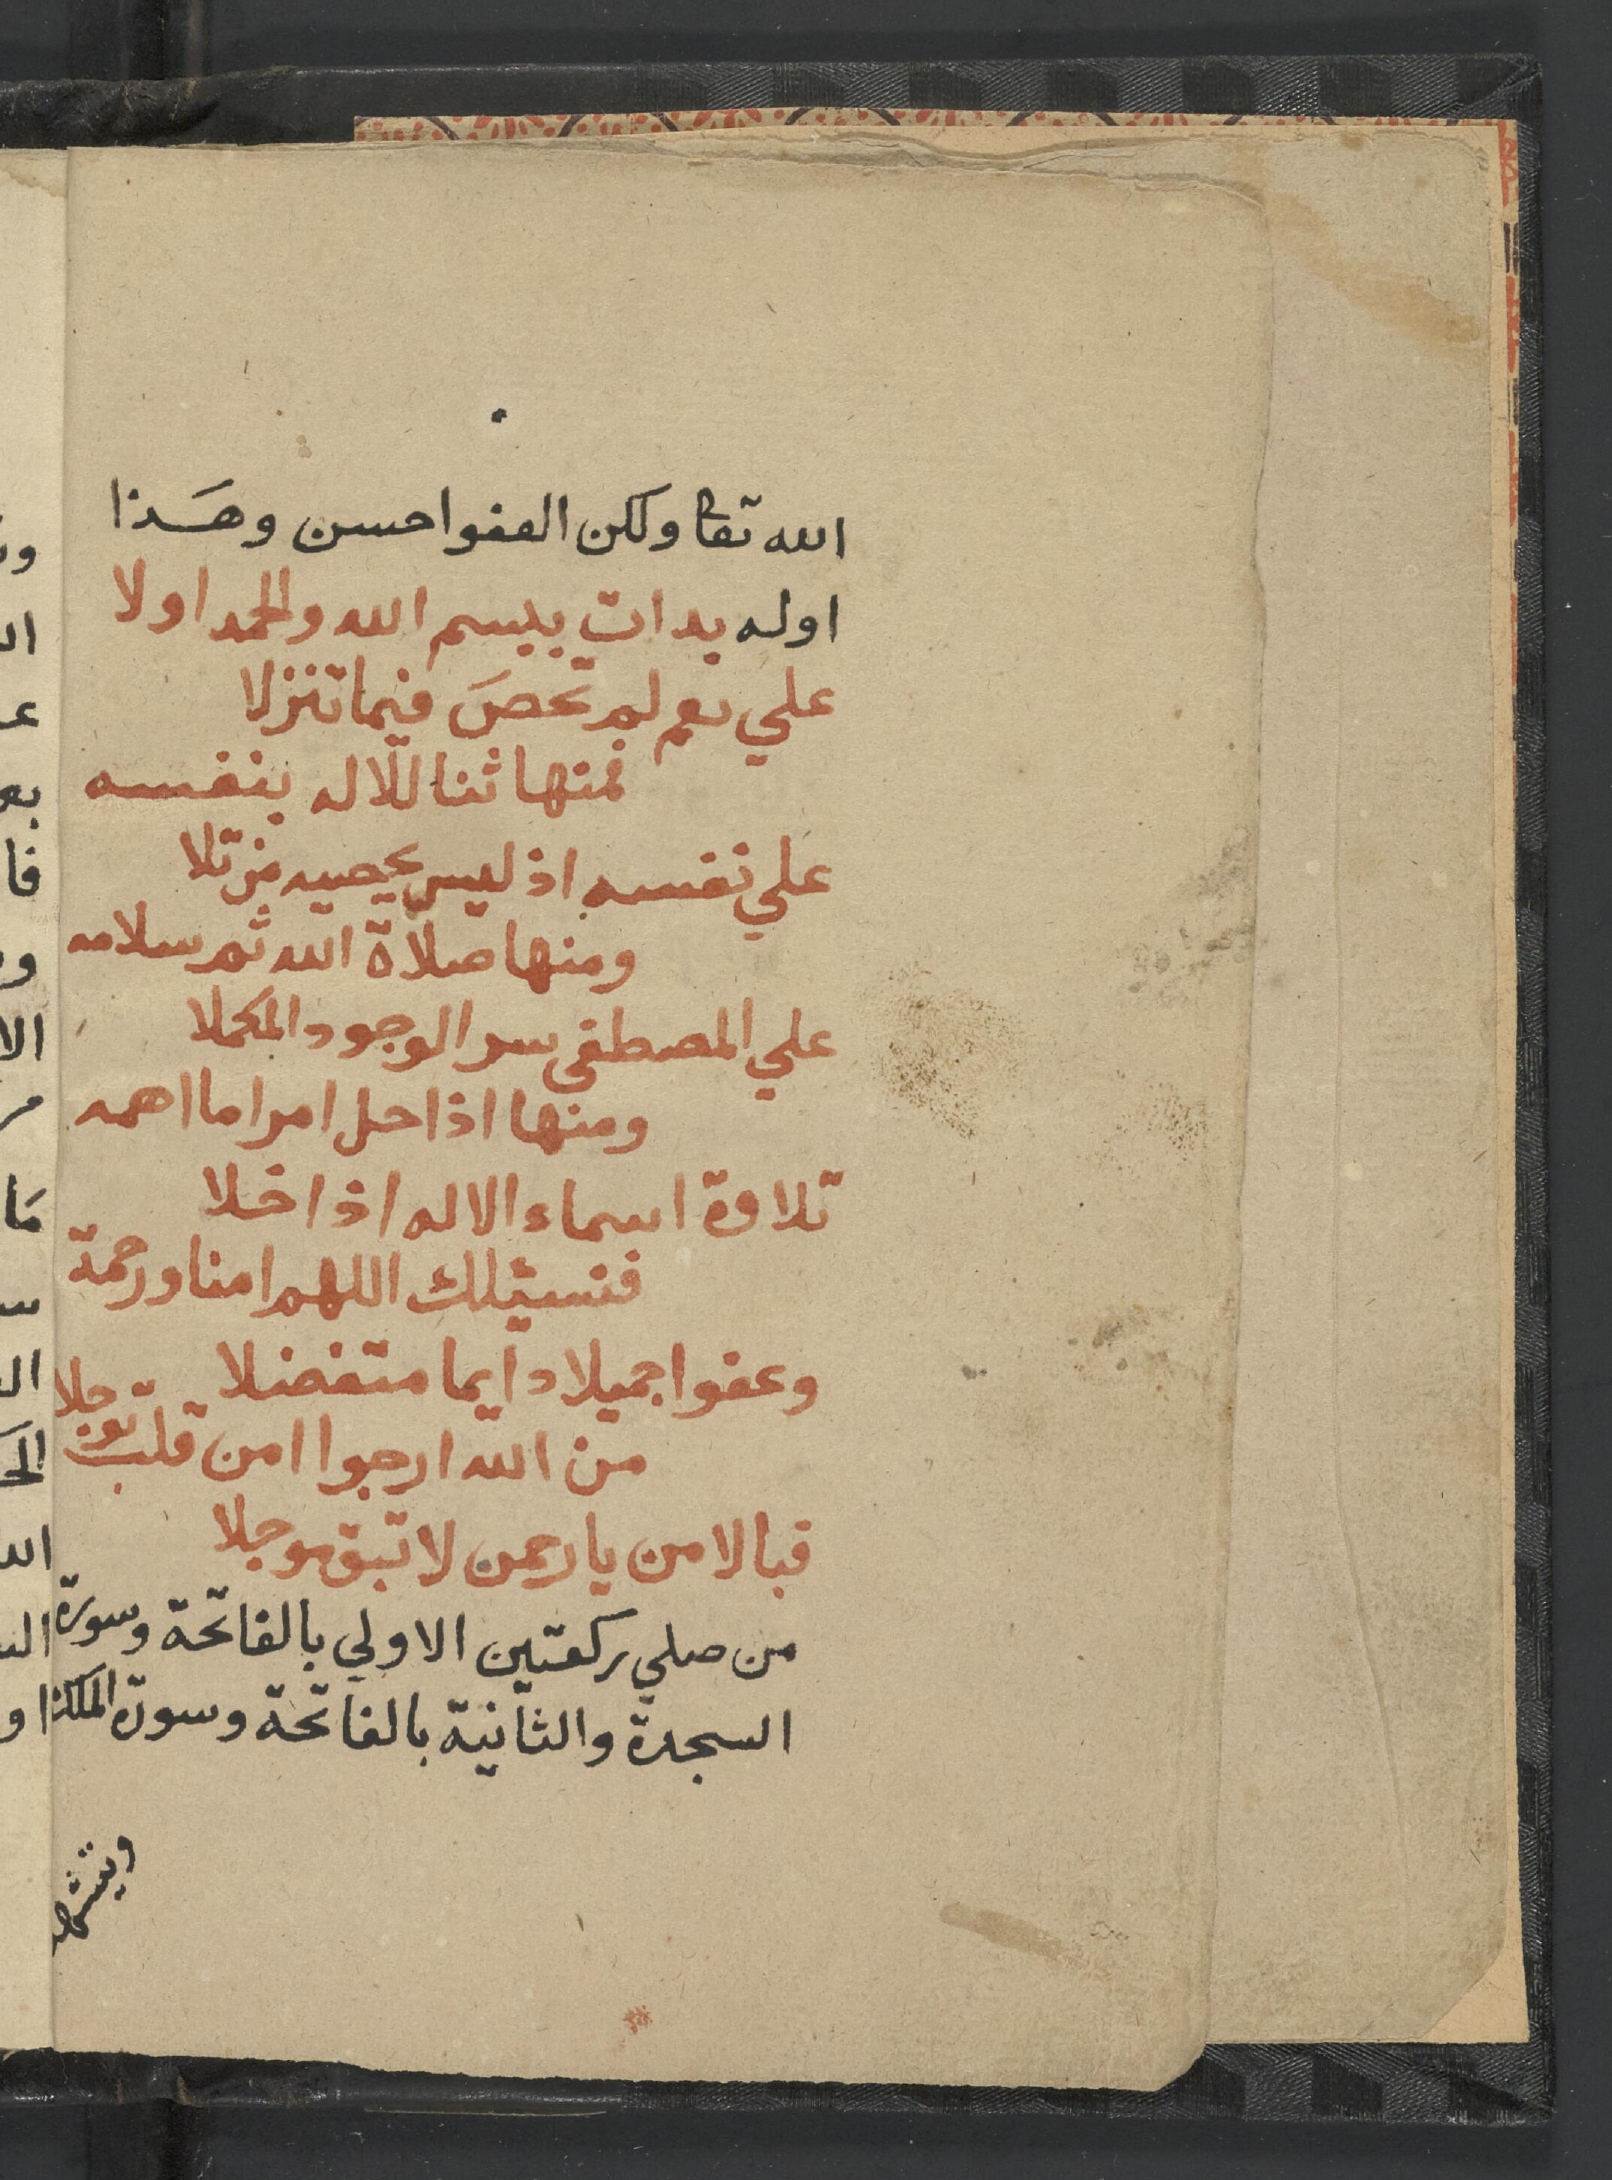 الله تعا ولكن العفو احسن وهَذا
اوله بدات ببسم الله والحمد اولا
علي نعم لم تحصَ فيما تنزلا
فمنها ثنا للاله بنفسه
علي نفسه اذ ليس يحصيه من تلا
ومنها صلاة الله ثم سلامه
علي المصطفى سر الوجود المكملا
ومنها اذا حل امرا ما اهمه
تلاوة اسماء الاله اذا خلا
فنسئلك اللهم امنا ورحمة
وعفوا جميلا دايما متفضلا
من الله ارجوا امن قلب توجلا
فبالامن يا رحمن لا تبق موجلا
من صلي ركعتين الاولي بالفاتحة وسورة
السجدة والثانية بالفاتحة وسورة الملك